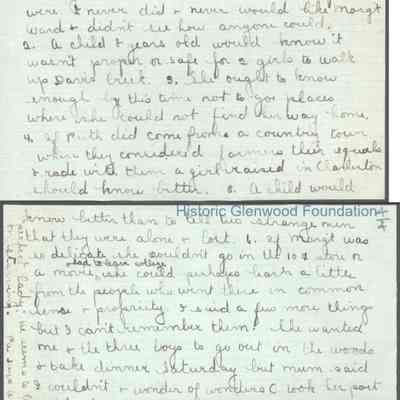 were. I never did & never would like Margt
Ward & didn't see how anyone could.
2. A child 8 years old would know it
wasn't proper or safe for 2 girls to walk
up Davis Creek. 3. She ought to know
enough by this time not to go places
where she could not find her way home.
4. If Ruth did come from a country town
where they considered farmers their equals
& rode with them a girl raised in Charleston
should know better. 5. A child would
Historic Glenwood Foundation
know better than to tell two strange men
that they were alone & lost. 6. if Margt was
so delicate she couldn't go in the 10¢ store or
had to leave college
a movie, she could perhaps learn a little
from the people who went there in common
sense & propriety. I said a few more things
but I can't remember them. She wanted
me & the three boys to go out in the woods
& bake dinner Saturday but mum said
I couldn't & wonder of wonders C. took her part